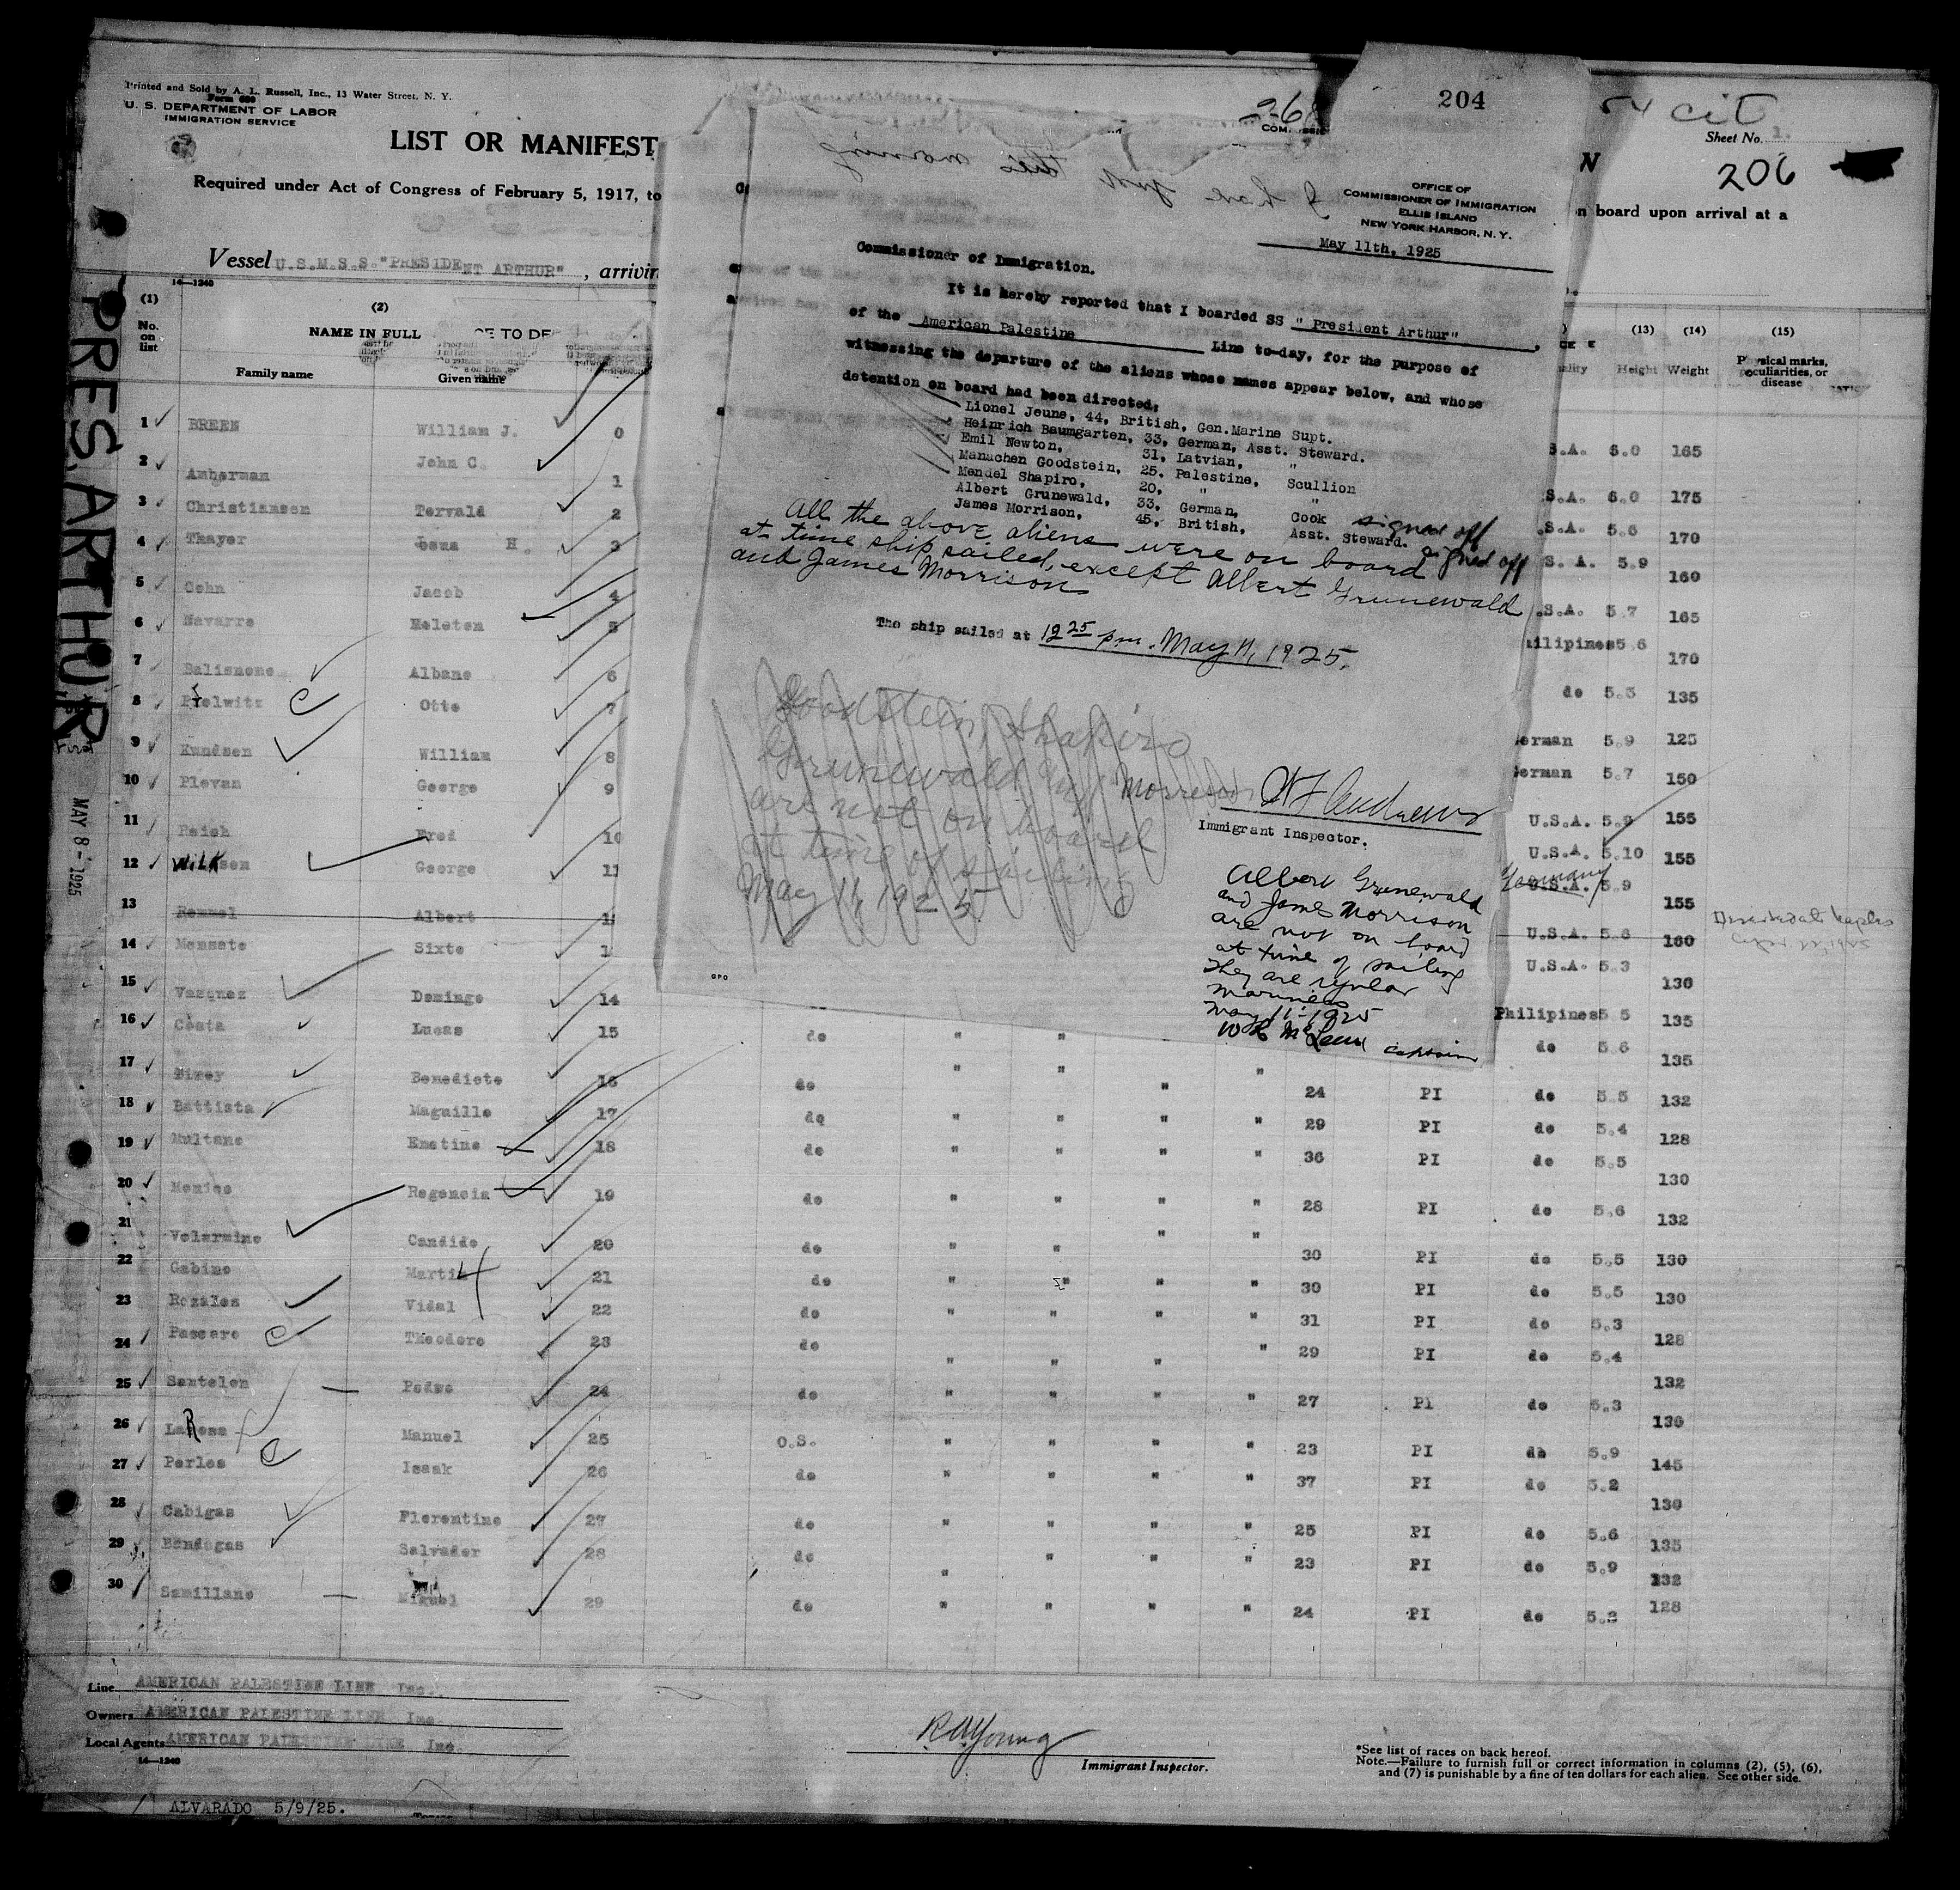 Printed and Sold by A. L. Russell, Inc., 13 Water Street, N. Y.
Form 680
U. S. DEPARTMENT OF LABOR
IMMIGRATION SERVICE
LIST OR MANIFEST
Required under Act of Congress of February 5, 1917, to
Vessel U.S.M.S.S. "PRESIDENT ARTHUR", arrivin
PRES. ARTHUR
MAY 8 - 1925
268
204
cit
Sheet No. 1.
206
N
n board upon arrival at a
I have just this morning
OFFICE OF
COMMISSIONER OF IMMIGRATION
ELLIS ISLAND
NEW YORK HARBOR, N. Y.
May 11th, 1925
Commissioner of Immigration.
It is hereby reported that I boarded SS " President Arthur"
of the American Palestine Line to-day, for the purpose of
witnessing the departure of the aliens whose names appear below, and whose
detention on board had been directed:
Lionel Jeune, 44, British, Gen.Marine Supt.
Heinrich Baumgarten, 33, German, Asst. Steward.
Emil Newton, 31, Latvian, "
Manachen Goodstein, 25. Palestine, Scullion
Mendel Shapiro, 20, " "
Albert Grunewald, 33, German, Cook signed off
James Morrison, 45, British, Asst. Steward. signed off
All the above aliens were on board
at time ship sailed, except Albert Grunewald
and James Morrison
The ship sailed at 12 25 pm. May 11, 1925.
Goodstein, Shapiro
Grunewald and Morrison
are not on board
at time of sailing
May 11, 1925
Immigrant Inspector.
Albert Grunewald
and James Morrison
are not on board
at time of sailing
They are regular
mariners
May 11-1925
Captain
GPO
14—1240
(1) (2) (13) (14) (15)
No. on list
NAME IN FULL
Family name Given name
Height Weight Physical marks, peculiarities, or disease
1 BREEN William J. 0 S.A. 6.0 165
2 Amberman John C. 1 S.A. 6.0 175
3 Christiansen Torvald 2 .S.A. 5.6 170
4 Thayer H. 3 S. A. 5.9 160
5 Cohn Jacob 4 .S.A. 5.7 165
6 Navarro Meleton 5 ilipines 5 6 170
7 Balismone Albano 6 do 5.5 135
8 Otto 7 erman 5.9 125
9 Kundsen William 8 erman 5.7 150
10 Plevan George 9 U.S.A. 5.9 155
11 Reich Fred 10 U.S.A. 5.10 155
12 George 11 Germany U.S.A. 5.9 155
13 Remmel Albert U.S.A. 5.6 160
14 Monsato Sixto U.S.A. 5.3 130
15 Vazquez Domingo 14 Philipines 5 5 135
16 Costa Lucas 15 do " " do 5.6 135
17 Benedicto 16 do " " " " 24 PI do 5.5 132
18 Battista Maguille 17 do " " " " 29 PI do 5.4 128
19 Multano Emetino 18 do " " " " 36 PI do 5.5 130
20 Regencia 19 do " " " " 28 PI do 5.6 132
21 Velarmino Candido 20 do " " " " 30 PI do 5.5 130
22 Gabino Martin 21 do " " " " 30 PI do 5.5 130
23 Rozales Vidal 22 do " " " " 31 PI do 5.3 128
24 Passaro Theodore 23 do " " " " 29 PI do 5.4 132
25 Santelon Pedro 24 do " " " " 27 PI do 5.3 130
26 LaRosa Manuel 25 O.S. " " " " 23 PI do 5.9 145
27 Perlos Isaak 26 do " " " " 37 PI do 5.2 130
28 Cabigas Florentino 27 do " " " " 25 PI do 5.6 135
29 Bandagas Salvador 28 do " " " " 23 PI do 5.9 132
30 Samillano Miguel 29 do " " " " 24 PI do 5.2 128
Line AMERICAN PALESTINE LINE Inc.
Owners AMERICAN PALESTINE LINE Inc
Local Agents AMERICAN PALESTINE LINE Inc.
14—1240
R A Young
Immigrant Inspector.
*See list of races on back hereof.
Note.—Failure to furnish full or correct information in columns (2), (5), (6),
and (7) is punishable by a fine of ten dollars for each alien. See other side.
ALVARADO 5/9/25.